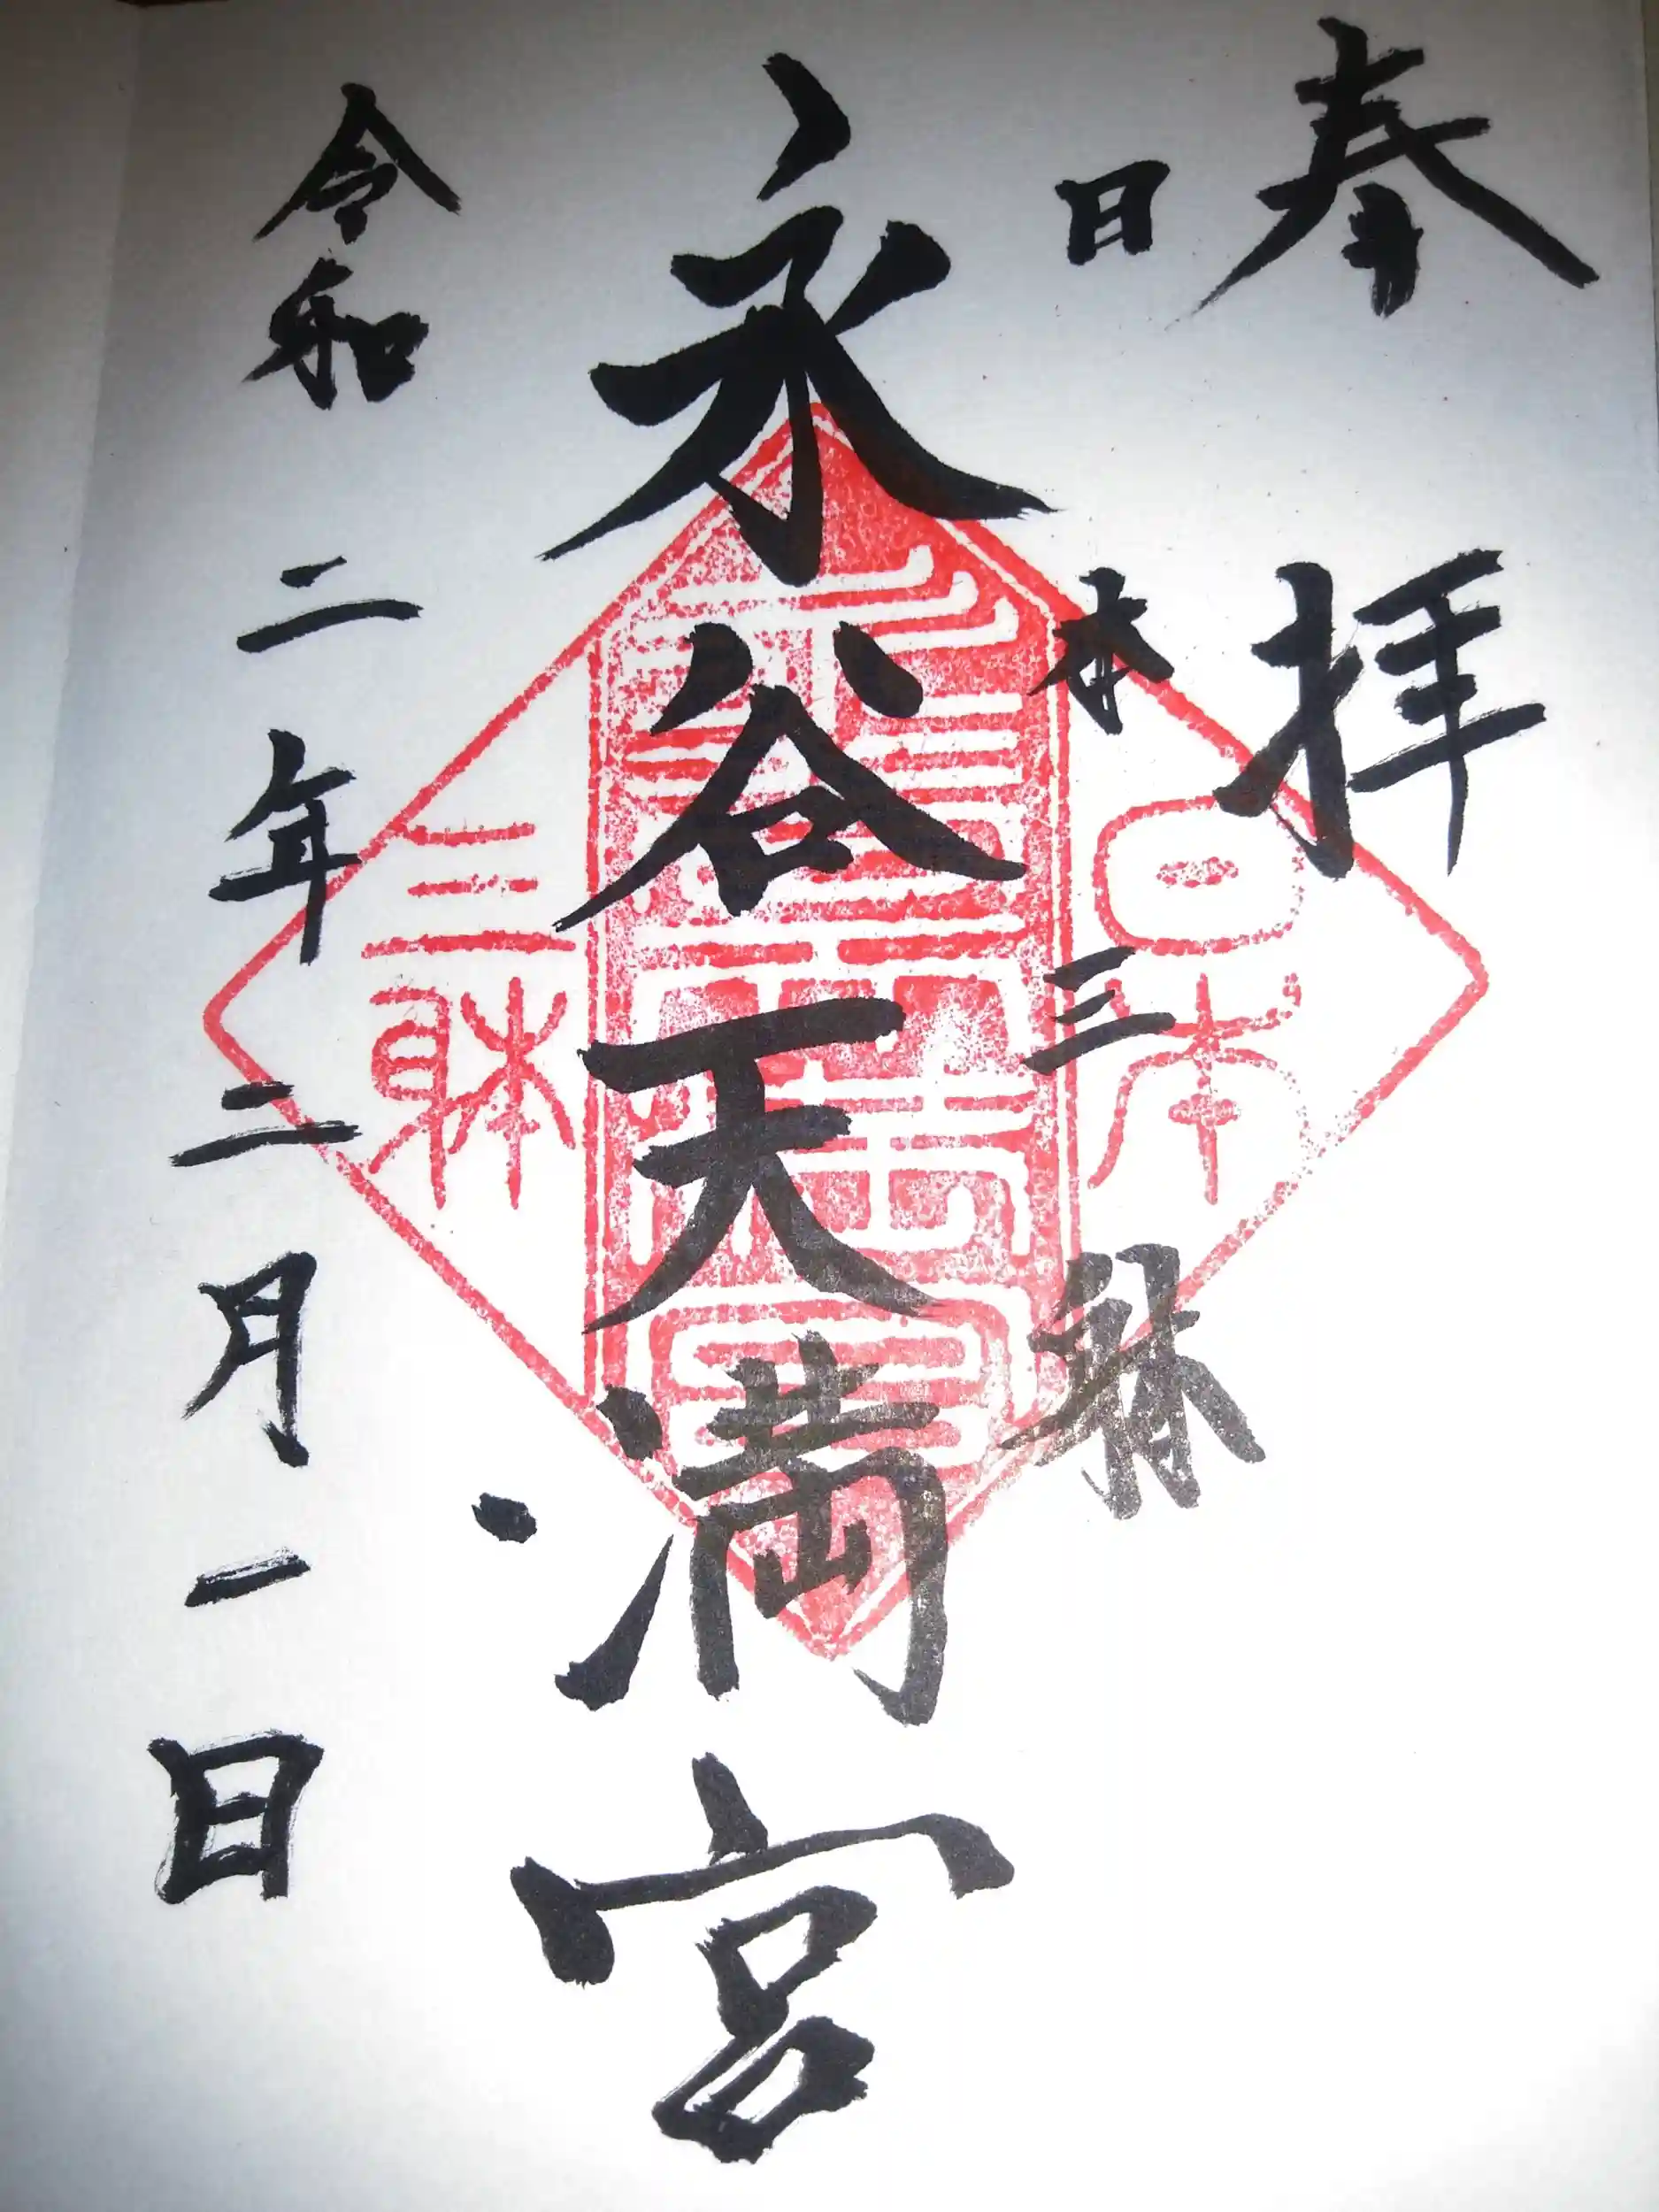 奉拝
日本三躰
永谷天満宮
令和二年二月一日
日本
三躰